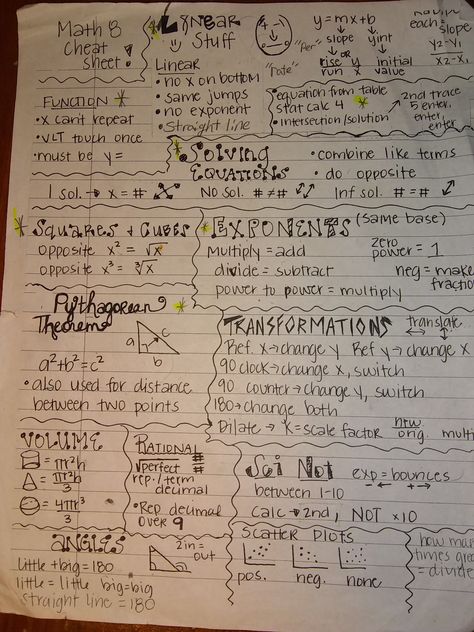 Math 8
Cheat
Sheet!
Linear
Stuff
Linear
• no x on bottom
• same jumps
• no exponent
• Straight line
y=mx+b
slope yint
or
"Per" rise y initial
"Rate" run x value
each=
slope
y2-y1
x2-x1
• equation from table
stat calc 4
• intersection/solution
2nd trace
5 enter,
enter,
enter
Function *
• x can't repeat
• VLT touch once
• must be y=
Solving
Equations
• combine like terms
• do opposite
1 sol. → x = #
No sol. #≠#
Inf sol. #=#
Squares & Cubes
opposite x² = √x
opposite x³ = ∛x
Exponents (same base)
multiply = add
divide = subtract
power to power = multiply
zero
power = 1
neg = make
fraction
Pythagorean
Theorem
a c
b
a²+b²=c²
• also used for distance
between two points
Transformations
translate
Ref x → change y Ref y → change x
90 clock → change x, switch
90 counter → change y, switch
180 → change both
Dilate → K = scale factor new
orig. mult
Volume
= πr²h
= πr²h
3
= 4πr³
3
Rational
#
√perfect #
rep/term
decimal
• Rep decimal
over 9
Sci Not
exp = bounces
- +
between 1-10
Calc → 2nd, NOT x10
Angles
little + big = 180
little = little big=big
straight line = 180
2 in =
out
Scatter Plots
pos. neg. none
how many
times grea
= divide